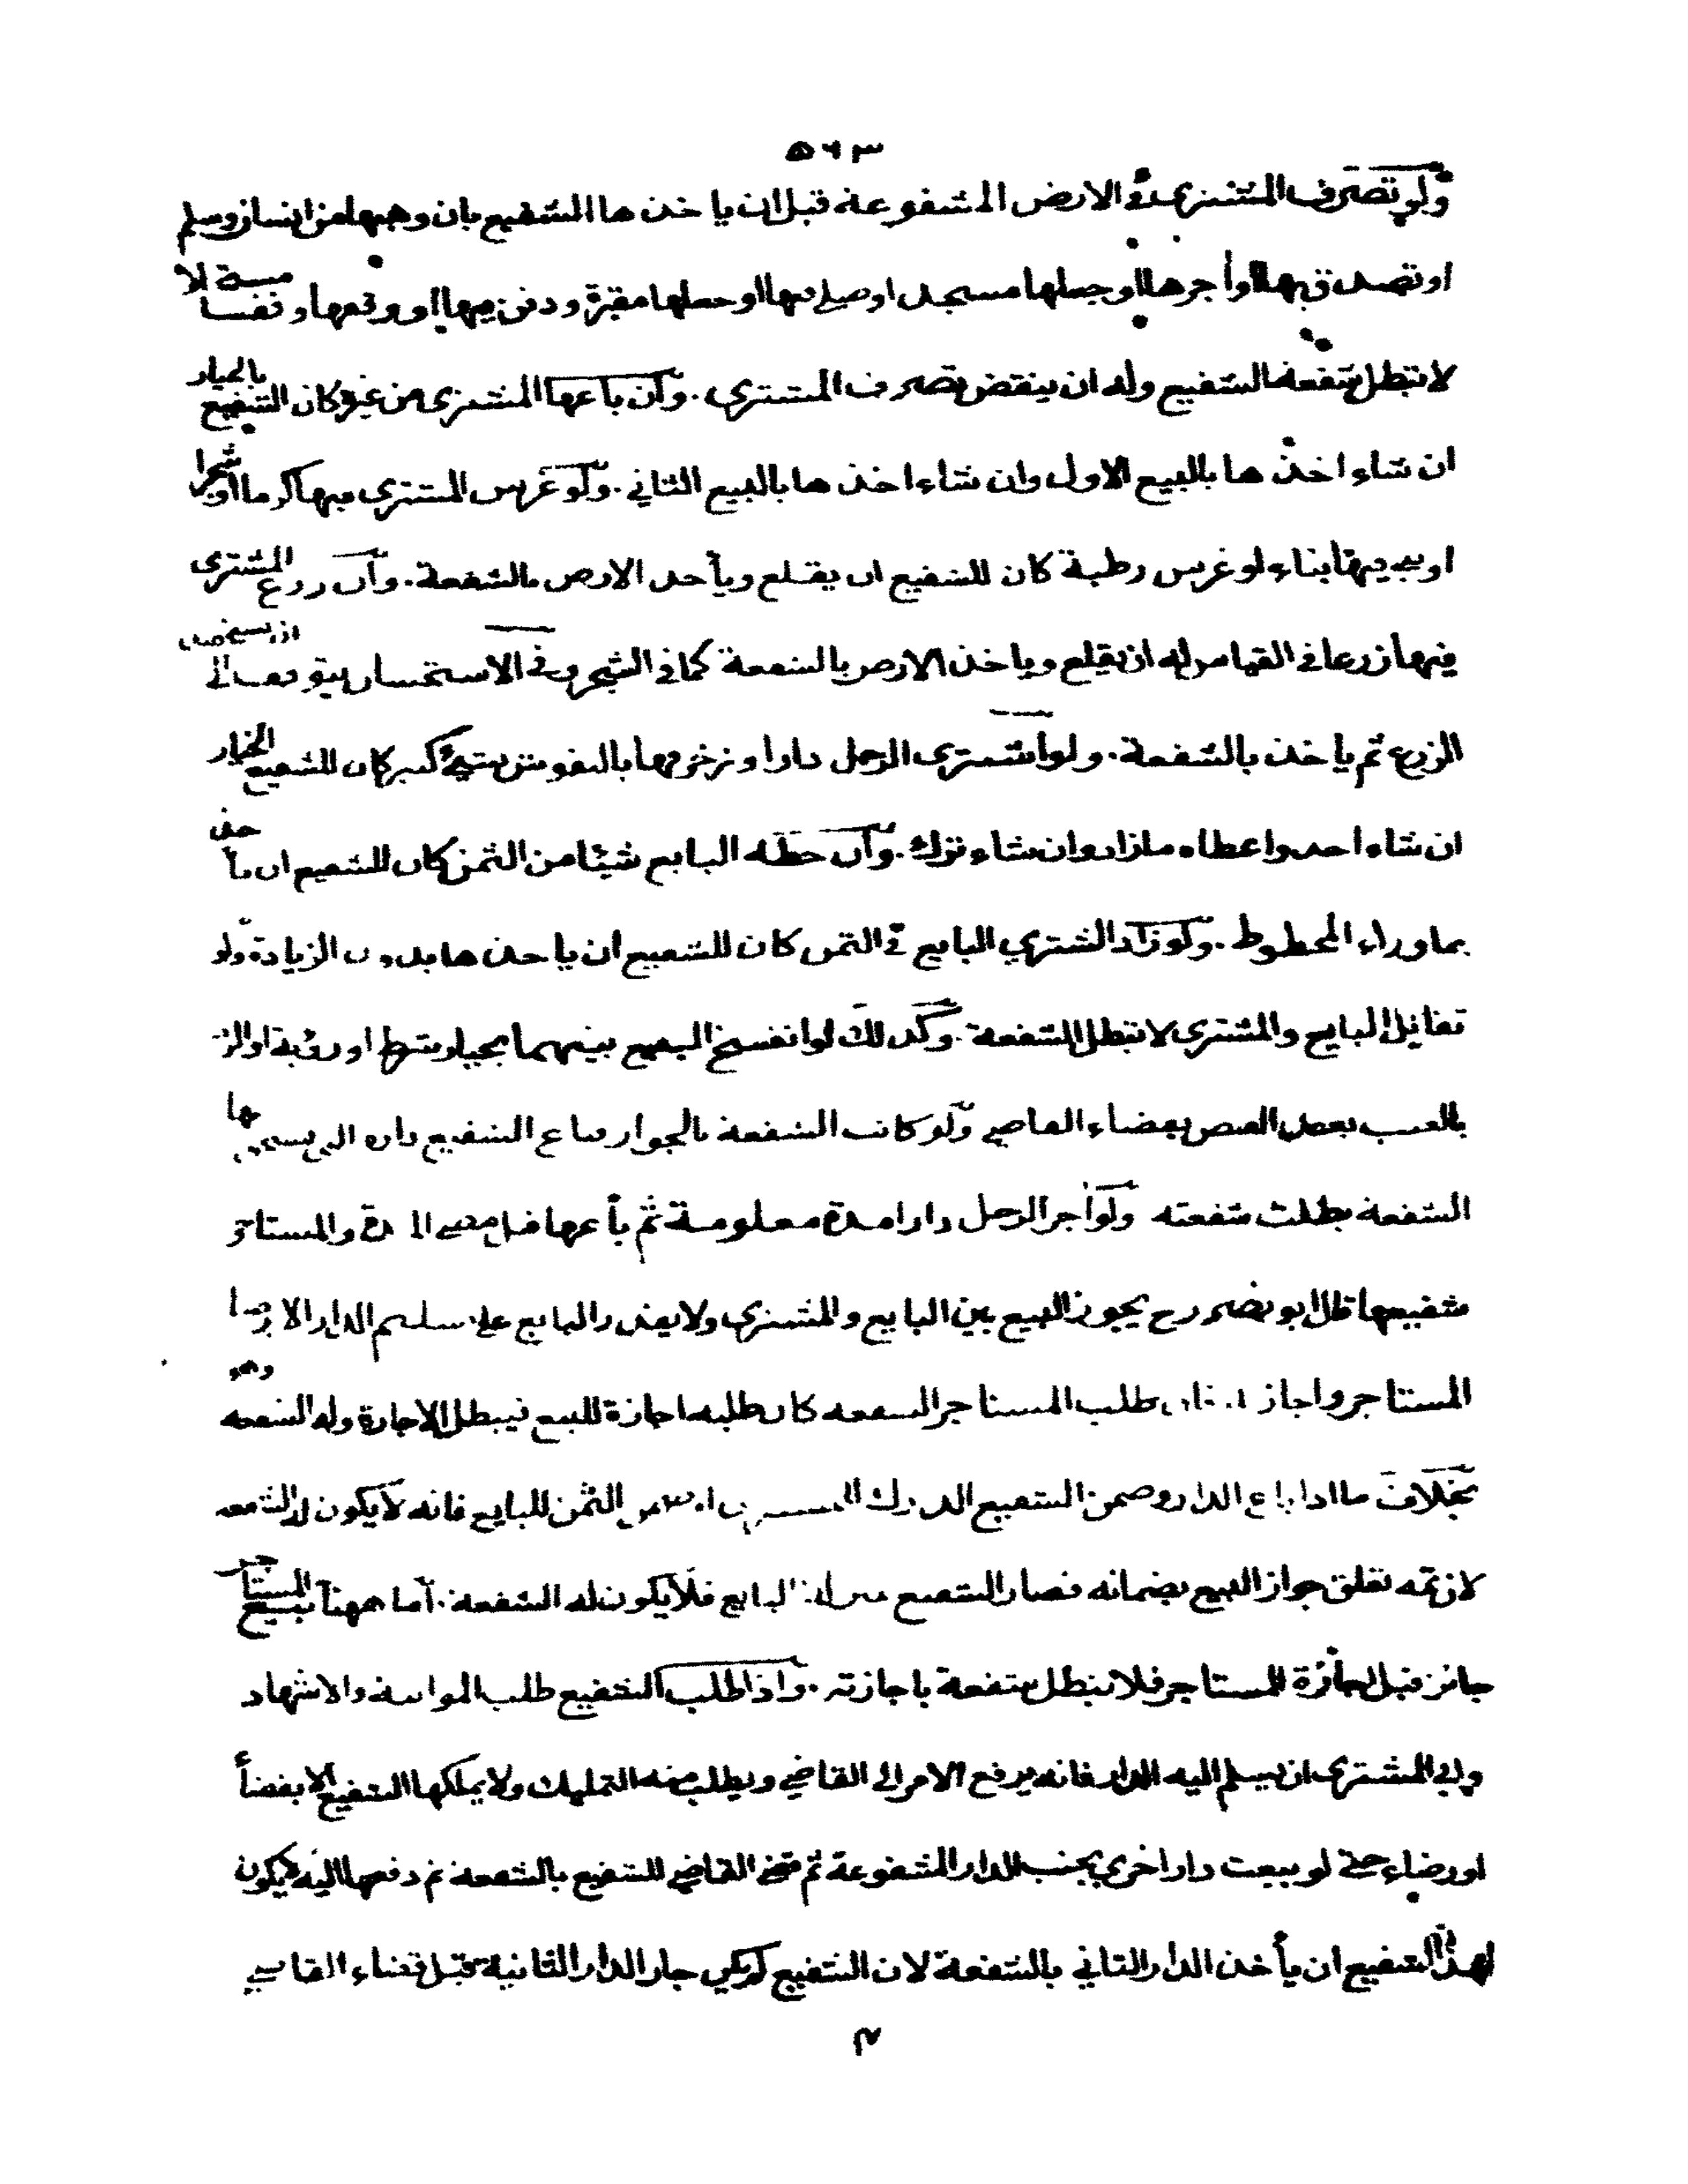 ٥٦٣
ولو تصرف المشتري في الارض المشفوعة قبل ان ياخذها الشفيع بان وهبها من انسان وسلم
او تصدق بها او أجرها او جعلها مسجدا وصلي فيها او جعلها مقبرة ودفن فيها او وقفها وقفا
لا تبطل شفعة الشفيع وله ان ينقض تصرف المشتري . وان باعها المشتري من غيره كان الشفيع بالخيار
ان شاء اخذها بالبيع الاول وان شاء اخذها بالبيع الثاني . ولو غرس المشتري فيها كرما او شجرا
او بني فيها بناء او غرس رطبة كان للشفيع ان يقلع ويأخذ الارض بالشفعة . وان زرع المشتري
فيها زرعا في القياس له ان يقلع وياخذ الارض بالشفعة كما في الشجر وفي الاستحسان يتوقف الى ان يستحصد
الزرع ثم ياخذ بالشفعة . ولو اشترى الرجل دارا وزخرفها بالنقوش بشيء كثير كان للشفيع الخيار
ان شاء أخذ واعطاه ما زاد وان شاء ترك . وان حط له البايع شيئا من الثمن كان للشفيع ان يأخذ
بما وراء المحطوط . ولو زاد المشتري البايع في الثمن كان للشفيع ان ياخذها بدون الزيادة ولو
تقايل البايع والمشترى لا تبطل الشفعة . وكذلك لو انفسخ البيع بينهما بخيار شرط او رؤية او الرد
بالعيب بعد القبض بقضاء القاضي ولو كانت الشفعة بالجوار فباع الشفيع داره التي يستحق بها
الشفعة بطلت شفعته ولو أجر الرجل دارا مدة معلومة ثم باعها قبل مضي المدة والمستاجر
شفيعها قال ابو نصر رح يجوز البيع بين البايع والمشتري ولا يقدر البايع على تسليم الدار الا برضا
المستاجر واجازته فان طلب المستاجر الشفعه كان طلبه اجازة للبيع فيبطل الاجارة وله الشفعه وهو
بخلاف ما اذا باع الدار وضمن الشفيع الدرك الثمن للبايع فانه لا يكون له الشفعه
لان ثمه تعلق جواز البيع بضمانه فصار الشفيع بمنزلة البايع فلا يكون له الشفعة . أما ههنا بيع المستاجر
جائز قبل اجازة المستاجر فلا تبطل شفعة باجازته . واذا طلب الشفيع طلب المواثبة والاشهاد
وابي المشترى ان يسلم اليه الدار فانه يرفع الامر الى القاضي ويطلب منه التمليك ولا يملكها الشفيع الا بقضأ
او رضاء حتى لو بيعت دار اخرى بجنب الدار المشفوعة ثم قضى القاضي للشفيع بالشفعه ثم دفعها اليه لا يكون
لهذا الشفيع ان يأخذ الدار الثاني بالشفعة لان الشفيع لم يكن جار الدار الثانية قبل قضاء القاضي